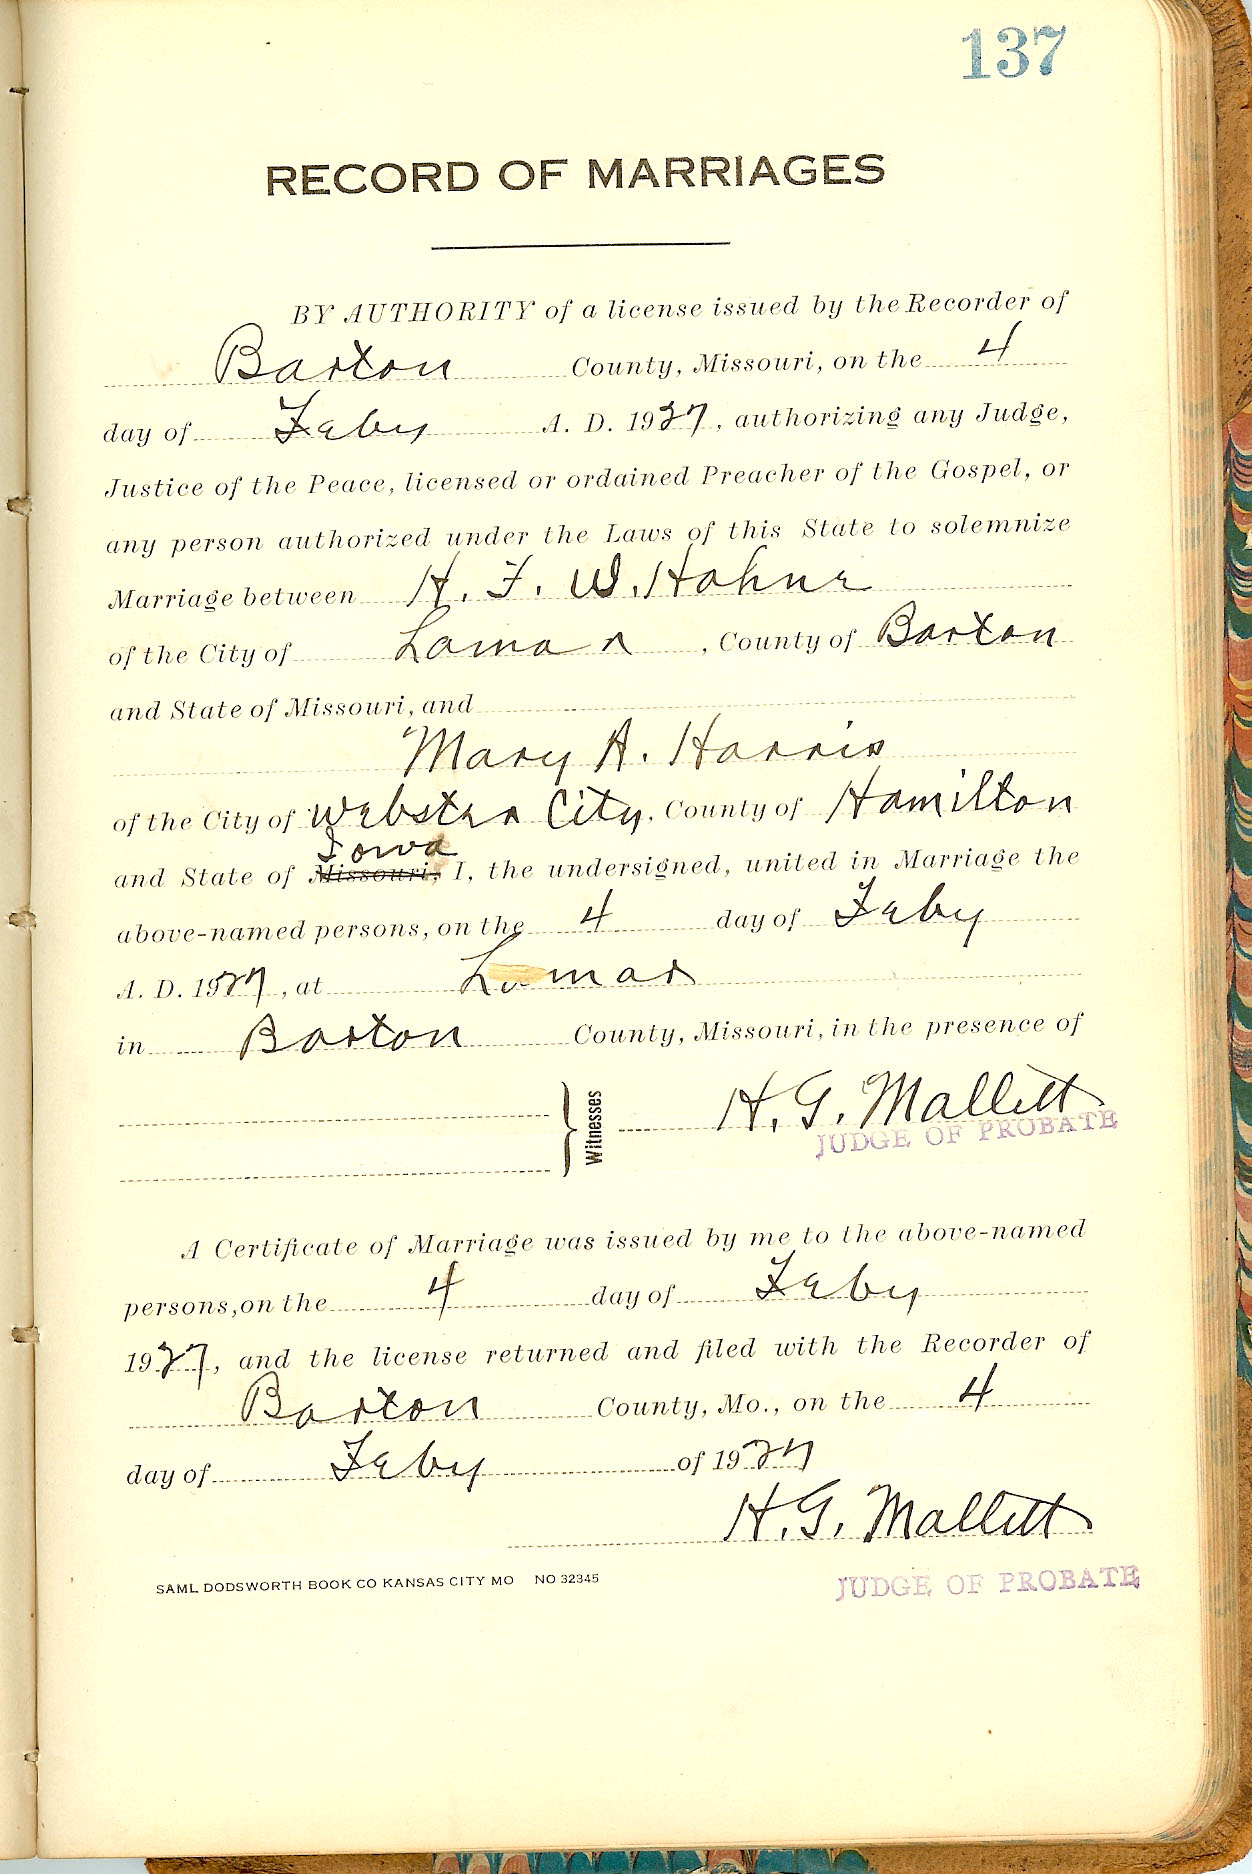 137
RECORD OF MARRIAGES
BY AUTHORITY of a license issued by the Recorder of
Barton County, Missouri, on the 4
day of Feby A. D. 1927, authorizing any Judge,
Justice of the Peace, licensed or ordained Preacher of the Gospel, or
any person authorized under the Laws of this State to solemnize
Marriage between H. F. W. Hohne
of the City of Lamar, County of Barton
and State of Missouri, and
Mary A. Harris
of the City of Webster City, County of Hamilton
Iowa
and State of Missouri, I, the undersigned, united in Marriage the
above-named persons, on the 4 day of Feby
A. D. 1927, at Lamar
in Barton County, Missouri, in the presence of
Witnesses H. G. Mallett
JUDGE OF PROBATE
A Certificate of Marriage was issued by me to the above-named
persons, on the 4 day of Feby
1927, and the license returned and filed with the Recorder of
Barton County, Mo., on the 4
day of Feby of 1927
H. G. Mallett
SAML DODSWORTH BOOK CO KANSAS CITY MO NO 32345
JUDGE OF PROBATE